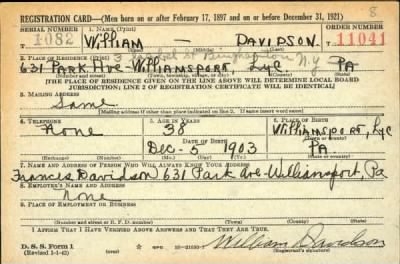 REGISTRATION CARD—(Men born on or after February 17, 1897 and on or before December 31, 1921) 8
SERIAL NUMBER 1. NAME (Print) ORDER NUMBER
T 1082 William DAVIDSON T 11041
(First) (Middle) (Last)
2. PLACE OF RESIDENCE (Print) St Binghamton N.Y
631 PARK Ave Williamsport, Lyc PA
(Number and street) (Town, township, village, or city) (County) (State)
[THE PLACE OF RESIDENCE GIVEN ON THE LINE ABOVE WILL DETERMINE LOCAL BOARD
JURISDICTION; LINE 2 OF REGISTRATION CERTIFICATE WILL BE IDENTICAL]
3. MAILING ADDRESS
Same
[Mailing address if other than place indicated on line 2. If same insert word same]
4. TELEPHONE 5. AGE IN YEARS 6. PLACE OF BIRTH
None 38 Williamsport, Lyc
DATE OF BIRTH (Town or county)
Dec- 5 1903 PA
(Exchange) (Number) (Mo.) (Day) (Yr.) (State or country)
7. NAME AND ADDRESS OF PERSON WHO WILL ALWAYS KNOW YOUR ADDRESS
Frances Davidson 631 Park Ave Williamsport, Pa
8. EMPLOYER'S NAME AND ADDRESS
None
9. PLACE OF EMPLOYMENT OR BUSINESS
(Number and street or R. F. D. number) (Town) (County) (State)
I AFFIRM THAT I HAVE VERIFIED ABOVE ANSWERS AND THAT THEY ARE TRUE.
D. S. S. Form 1
(Revised 1-1-42) GPO William Davidson